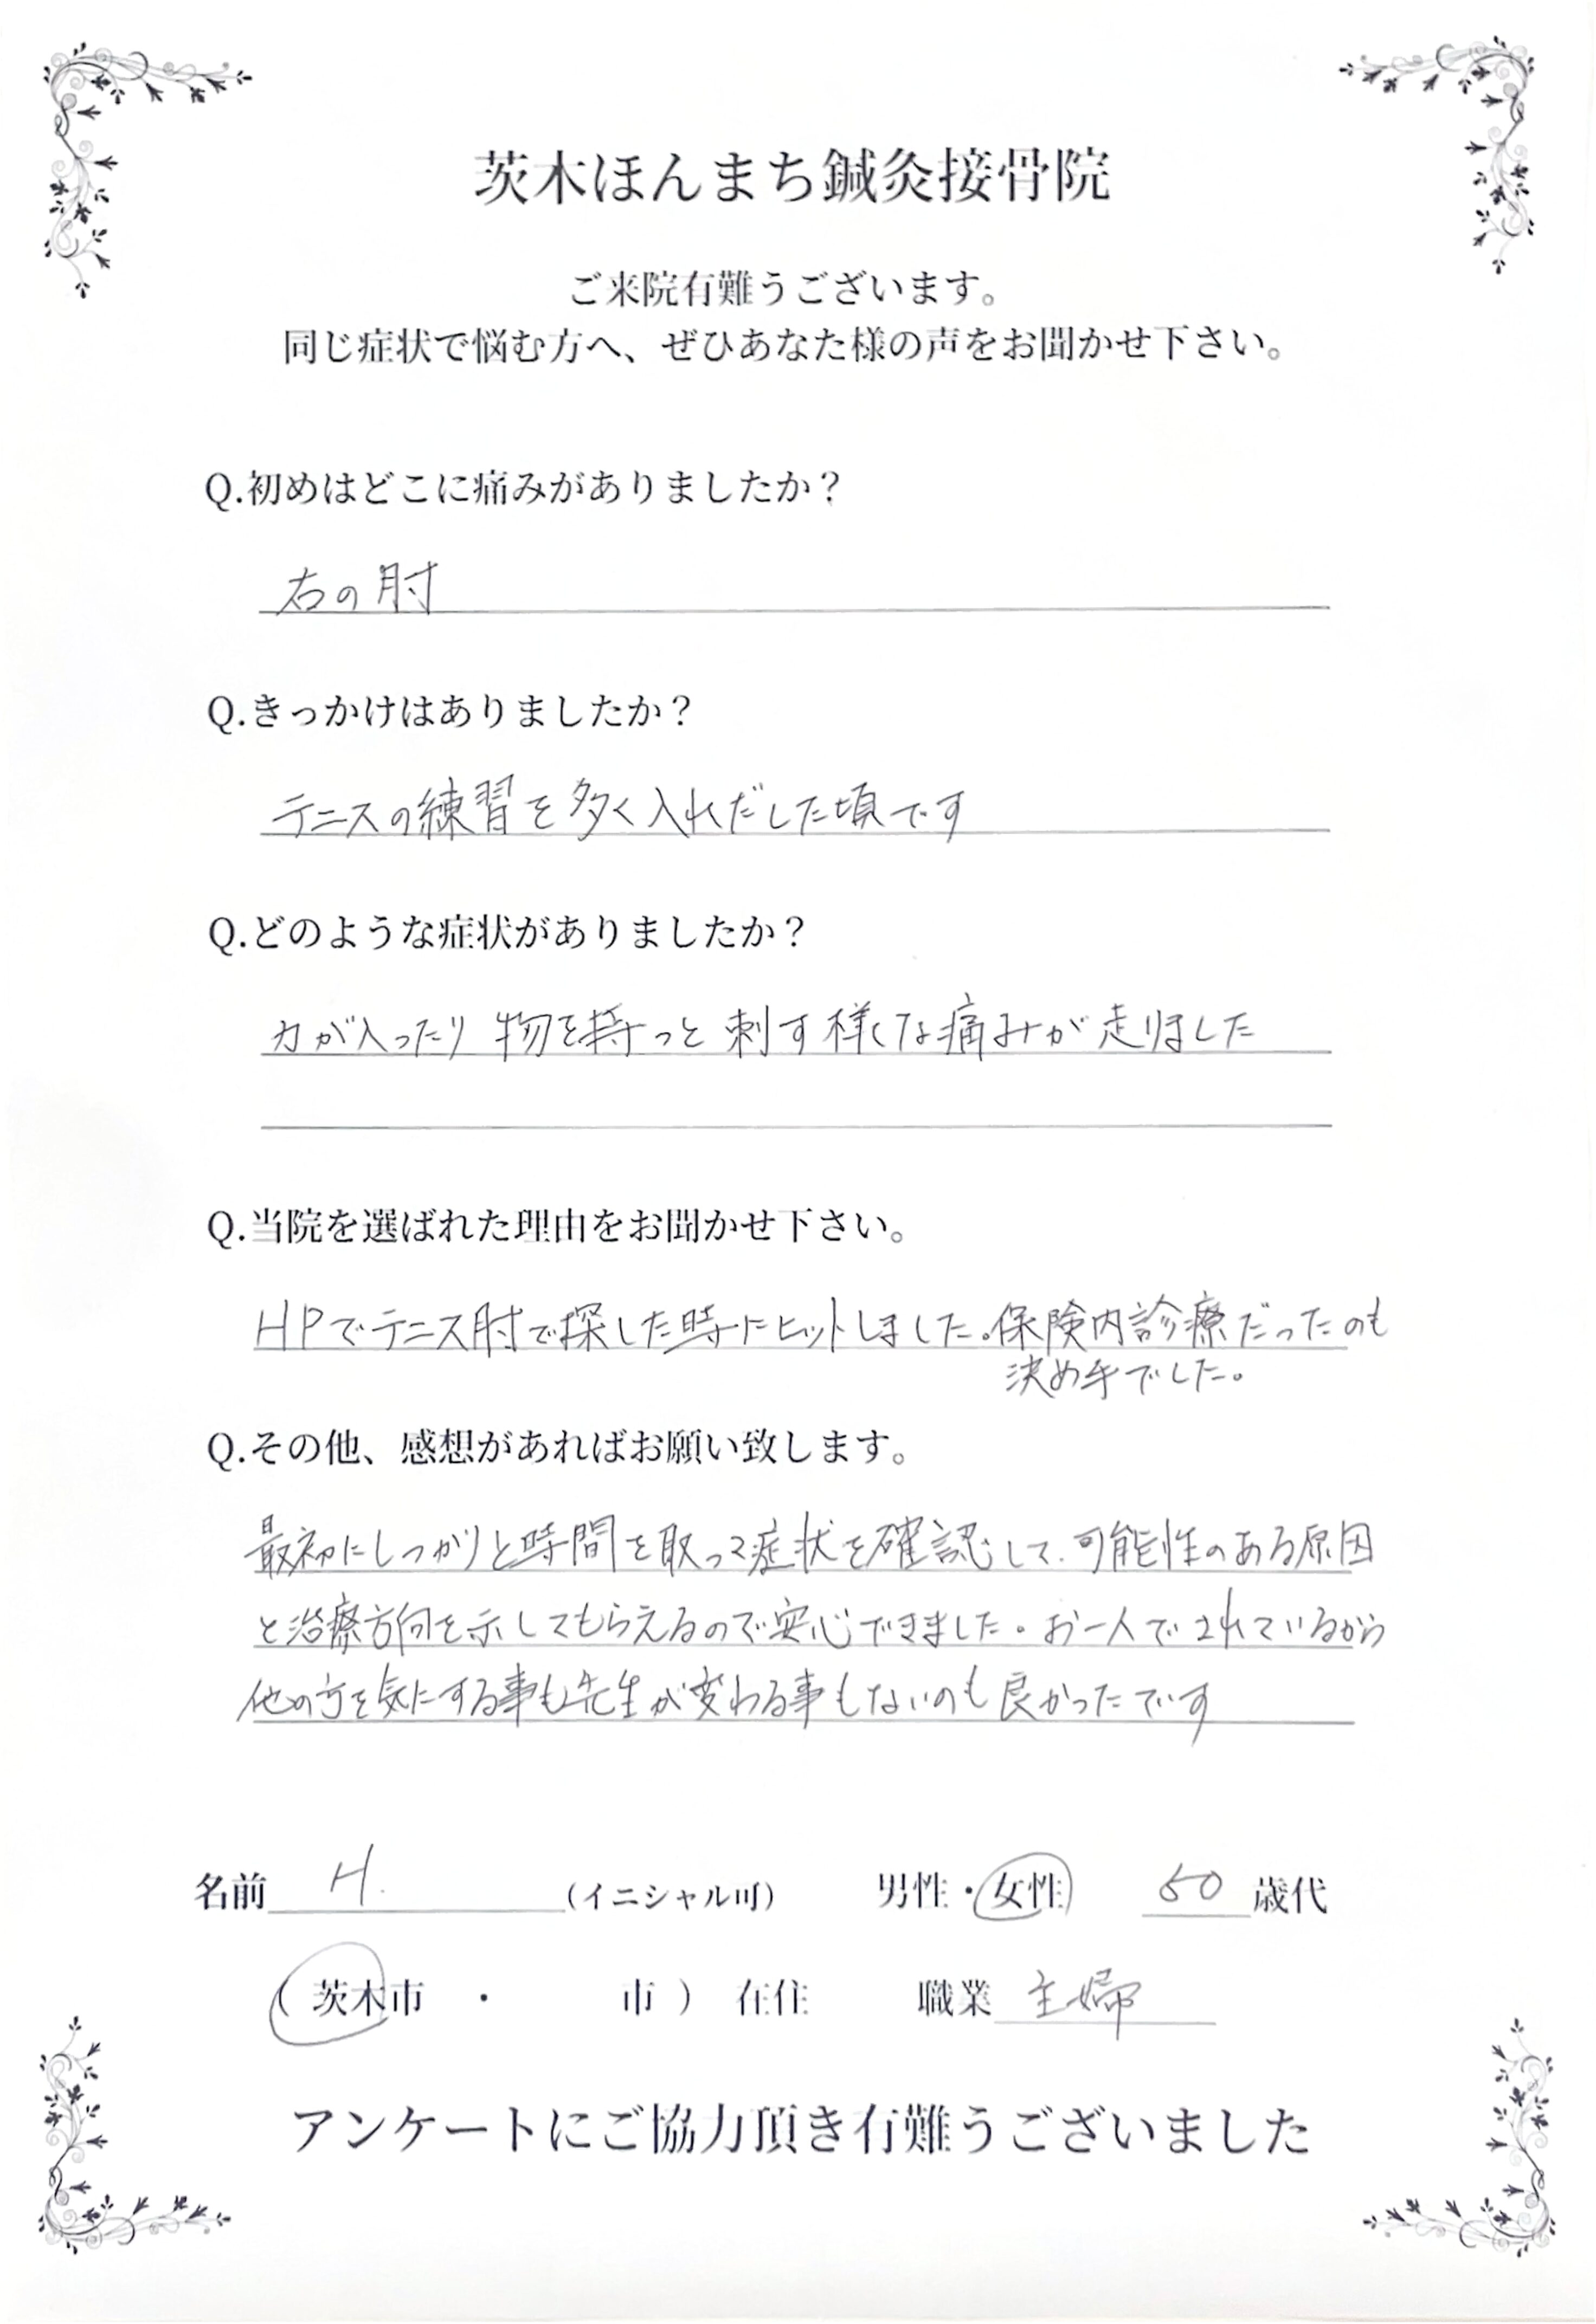 茨木ほんまち鍼灸接骨院
ご来院有難うございます。
同じ症状で悩む方へ、ぜひあなた様の声をお聞かせ下さい。
Q.初めはどこに痛みがありましたか？
右の肘
Q.きっかけはありましたか？
テニスの練習を多く入れだした頃です
Q.どのような症状がありましたか？
力が入ったり 物を持つと 刺す様な痛みが走りました
Q.当院を選ばれた理由をお聞かせ下さい。
HPでテニス肘で探した時にヒットしました。保険内診療だったのも
決め手でした。
Q.その他、感想があればお願い致します。
最初にしっかりと時間を取って症状を確認して、可能性のある原因
と治療方向を示してもらえるので安心できました。お一人でされているから
他の方を気にする事も先生が変わる事もないのも良かったです
名前 H. （イニシャル可） 男性・女性 50 歳代
（ 茨木市 ・ 市 ） 在住 職業 主婦
アンケートにご協力頂き有難うございました